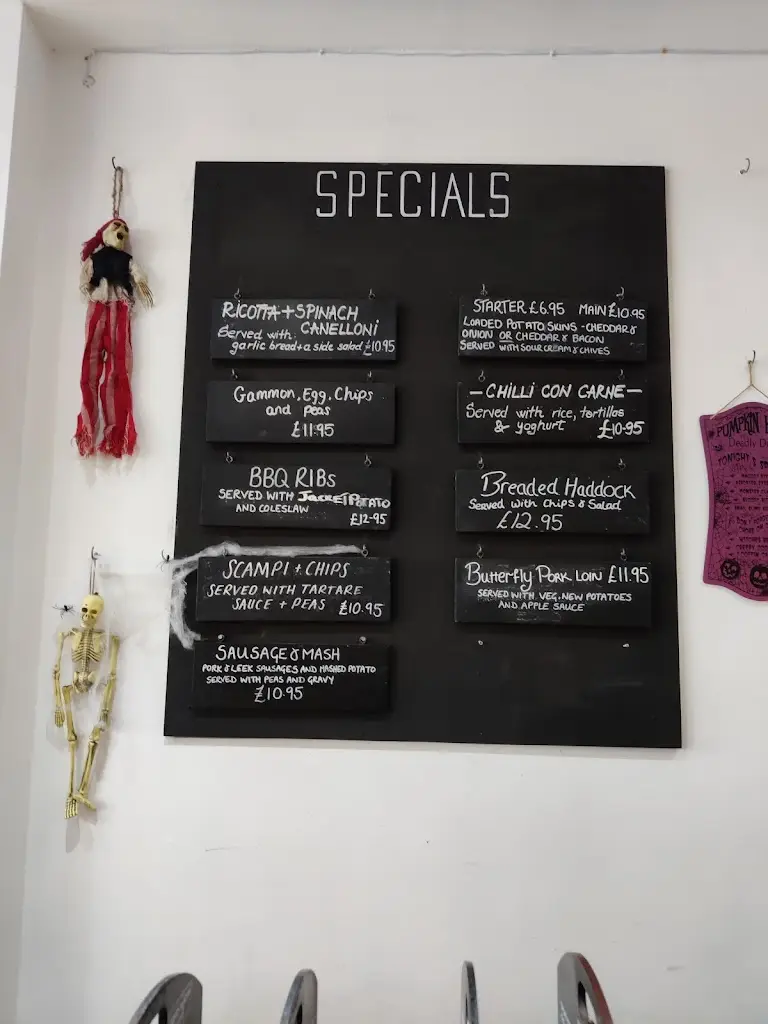 SPECIALS
RICOTTA + SPINACH
CANELLONI
Served with:
garlic bread + a side salad £10.95
Gammon, Egg, Chips
and peas
£11.95
BBQ RIBs
SERVED WITH JACKET POTATO
AND COLESLAW
£12-95
SCAMPI + CHIPS
SERVED WITH TARTARE
SAUCE + PEAS £10.95
SAUSAGE & MASH
PORK & LEEK SAUSAGES AND MASHED POTATO
SERVED WITH PEAS AND GRAVY
£10.95
STARTER £6.95 MAIN £10.95
LOADED POTATO SKINS - CHEDDAR &
ONION OR CHEDDAR & BACON
SERVED WITH SOUR CREAM & CHIVES
— CHILLI CON CARNE —
Served with rice, tortillas
& yoghurt £10.95
Breaded Haddock
Served with Chips & Salad
£12.95
Butterfly PORK LOIN £11.95
SERVED WITH VEG, NEW POTATOES
AND APPLE SAUCE
PUMPKIN
Deadly
TONIGHT'S